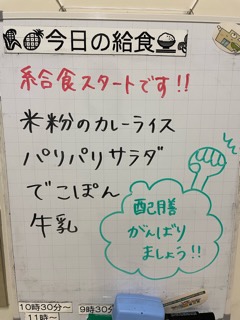 今日の給食
給食スタートです!!
米粉のカレーライス
パリパリサラダ
でこぽん
牛乳
配膳
がんばり
ましょう!!
10時30分~
11時~
9時30分